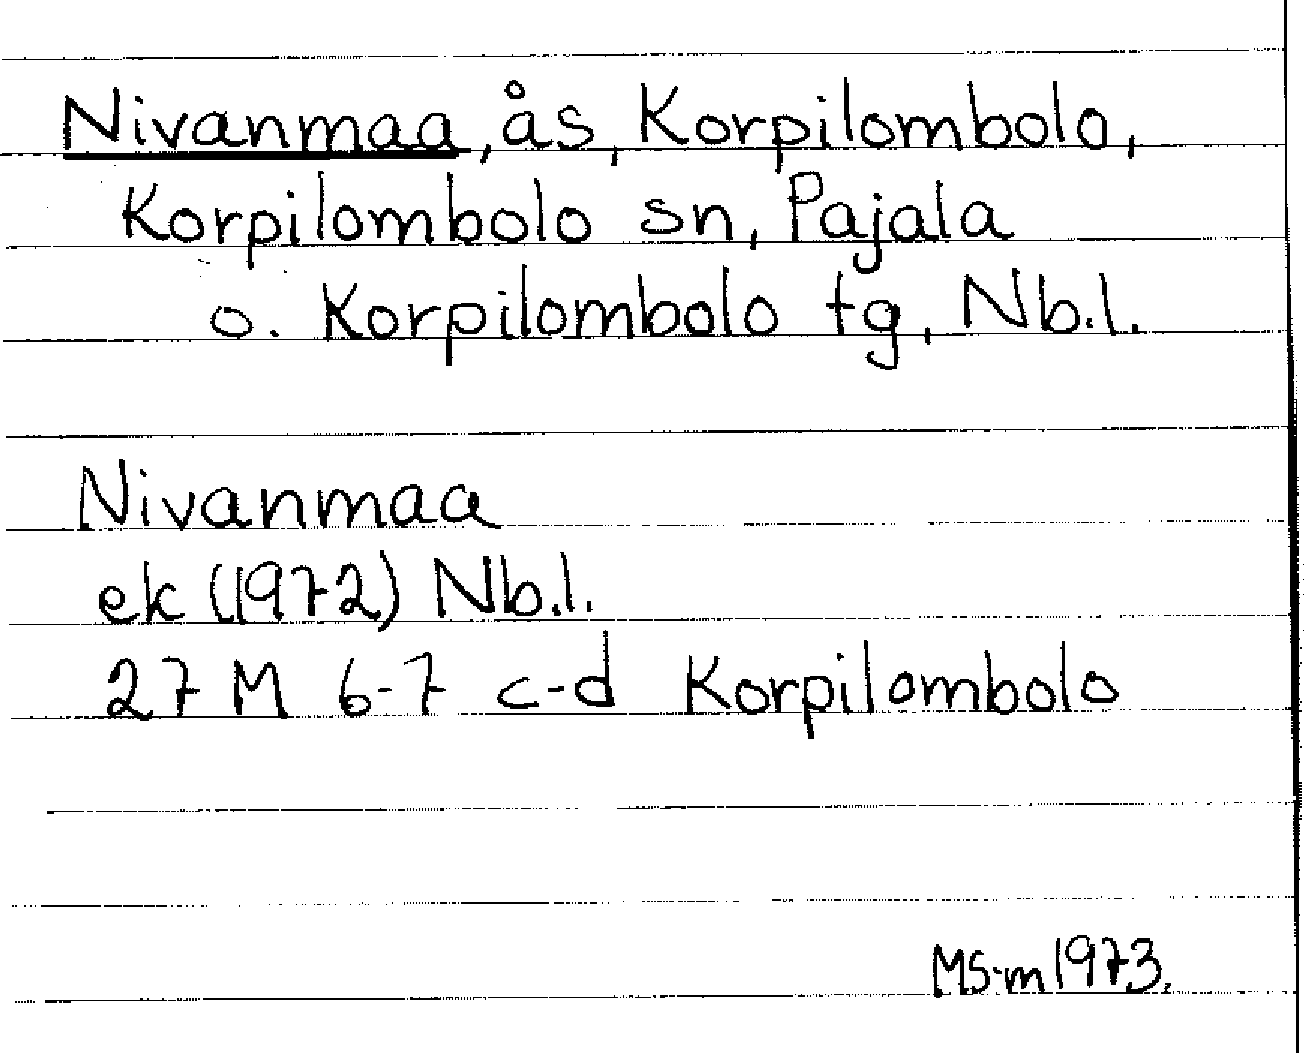 Nivanmaa, ås, Korpilombolo,
Korpilombolo sn, Pajala
o. Korpilombolo tg, Nb.l.
Nivanmaa
ek (1972) Nb.l.
27 M 6-7 c-d Korpilombolo
MS-m 1973.